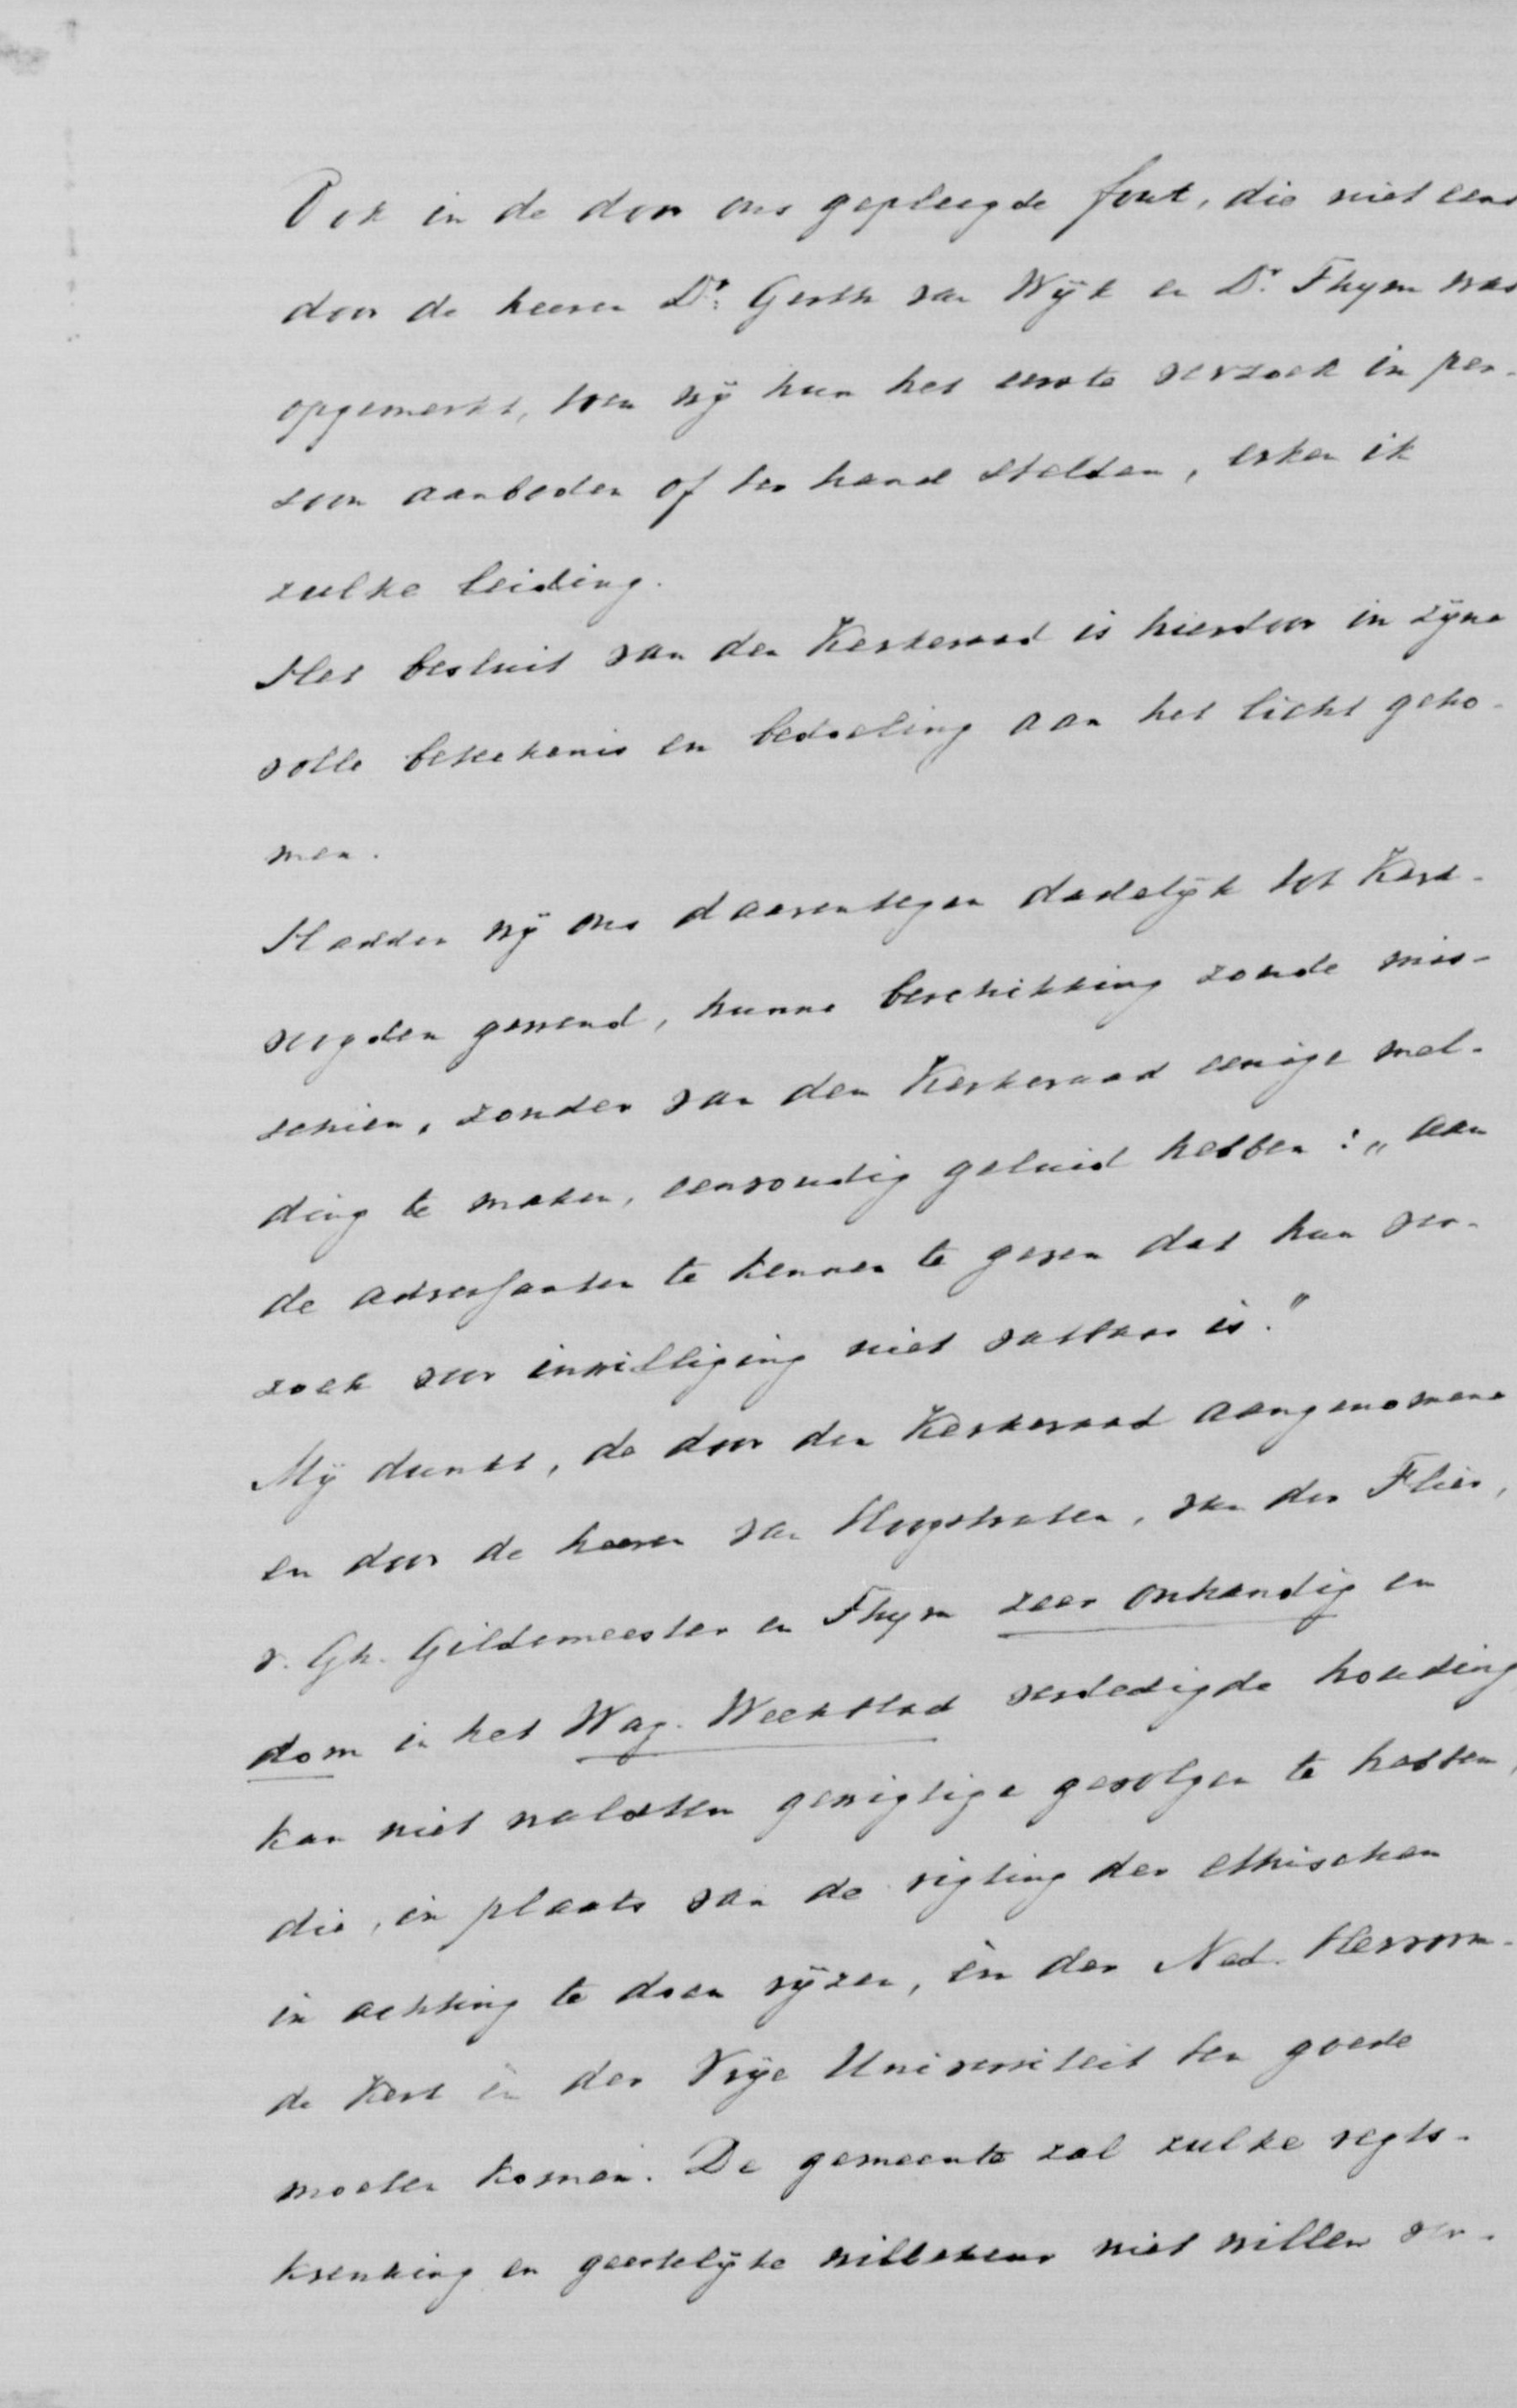 Ook in de door ons gepleegde fout, die niet eens
door de heeren Dr. Gerth van Wijk en Dr. Thym was
opgemerkt, toen wij hun het eerste verzoek in per-
soon aanboden of ter hand stelden, erken ik
zulke leiding.
Het besluit van den Kerkeraad is hierdoor in zijne
volle beteekenis en bedoeling aan het licht geko-
men.
Hadden wij ons daarentegen dadelijk tot Kerk-
voogden gewend, hunne beschikking zoude mis-
schien, zonder van den Kerkeraad eenige mel-
ding te maken, eenvoudig geluid hebben: „aan
de adressanten te kennen te geven dat hun ver-
zoek voor inwilliging niet vatbaar is."
Mij dunkt, de door den Kerkeraad aangenomene
en door de heeren van Hoogstraten, van der Flier,
v. Gh. Gildemeester en Thym zeer onhandig en
dom in het Wag. Weekblad verdedigde houding
kan niet nalaten gewigtige gevolgen te hebben,
die, in plaats van de rigting der ethischen
in achting te doen rijzen, èn der Ned. Hervorm-
de Kerk èn der Vrije Universiteit ten goede
moeten komen. De gemeente zal zulke regts-
krenking en geestelijke willekeur niet willen ver-